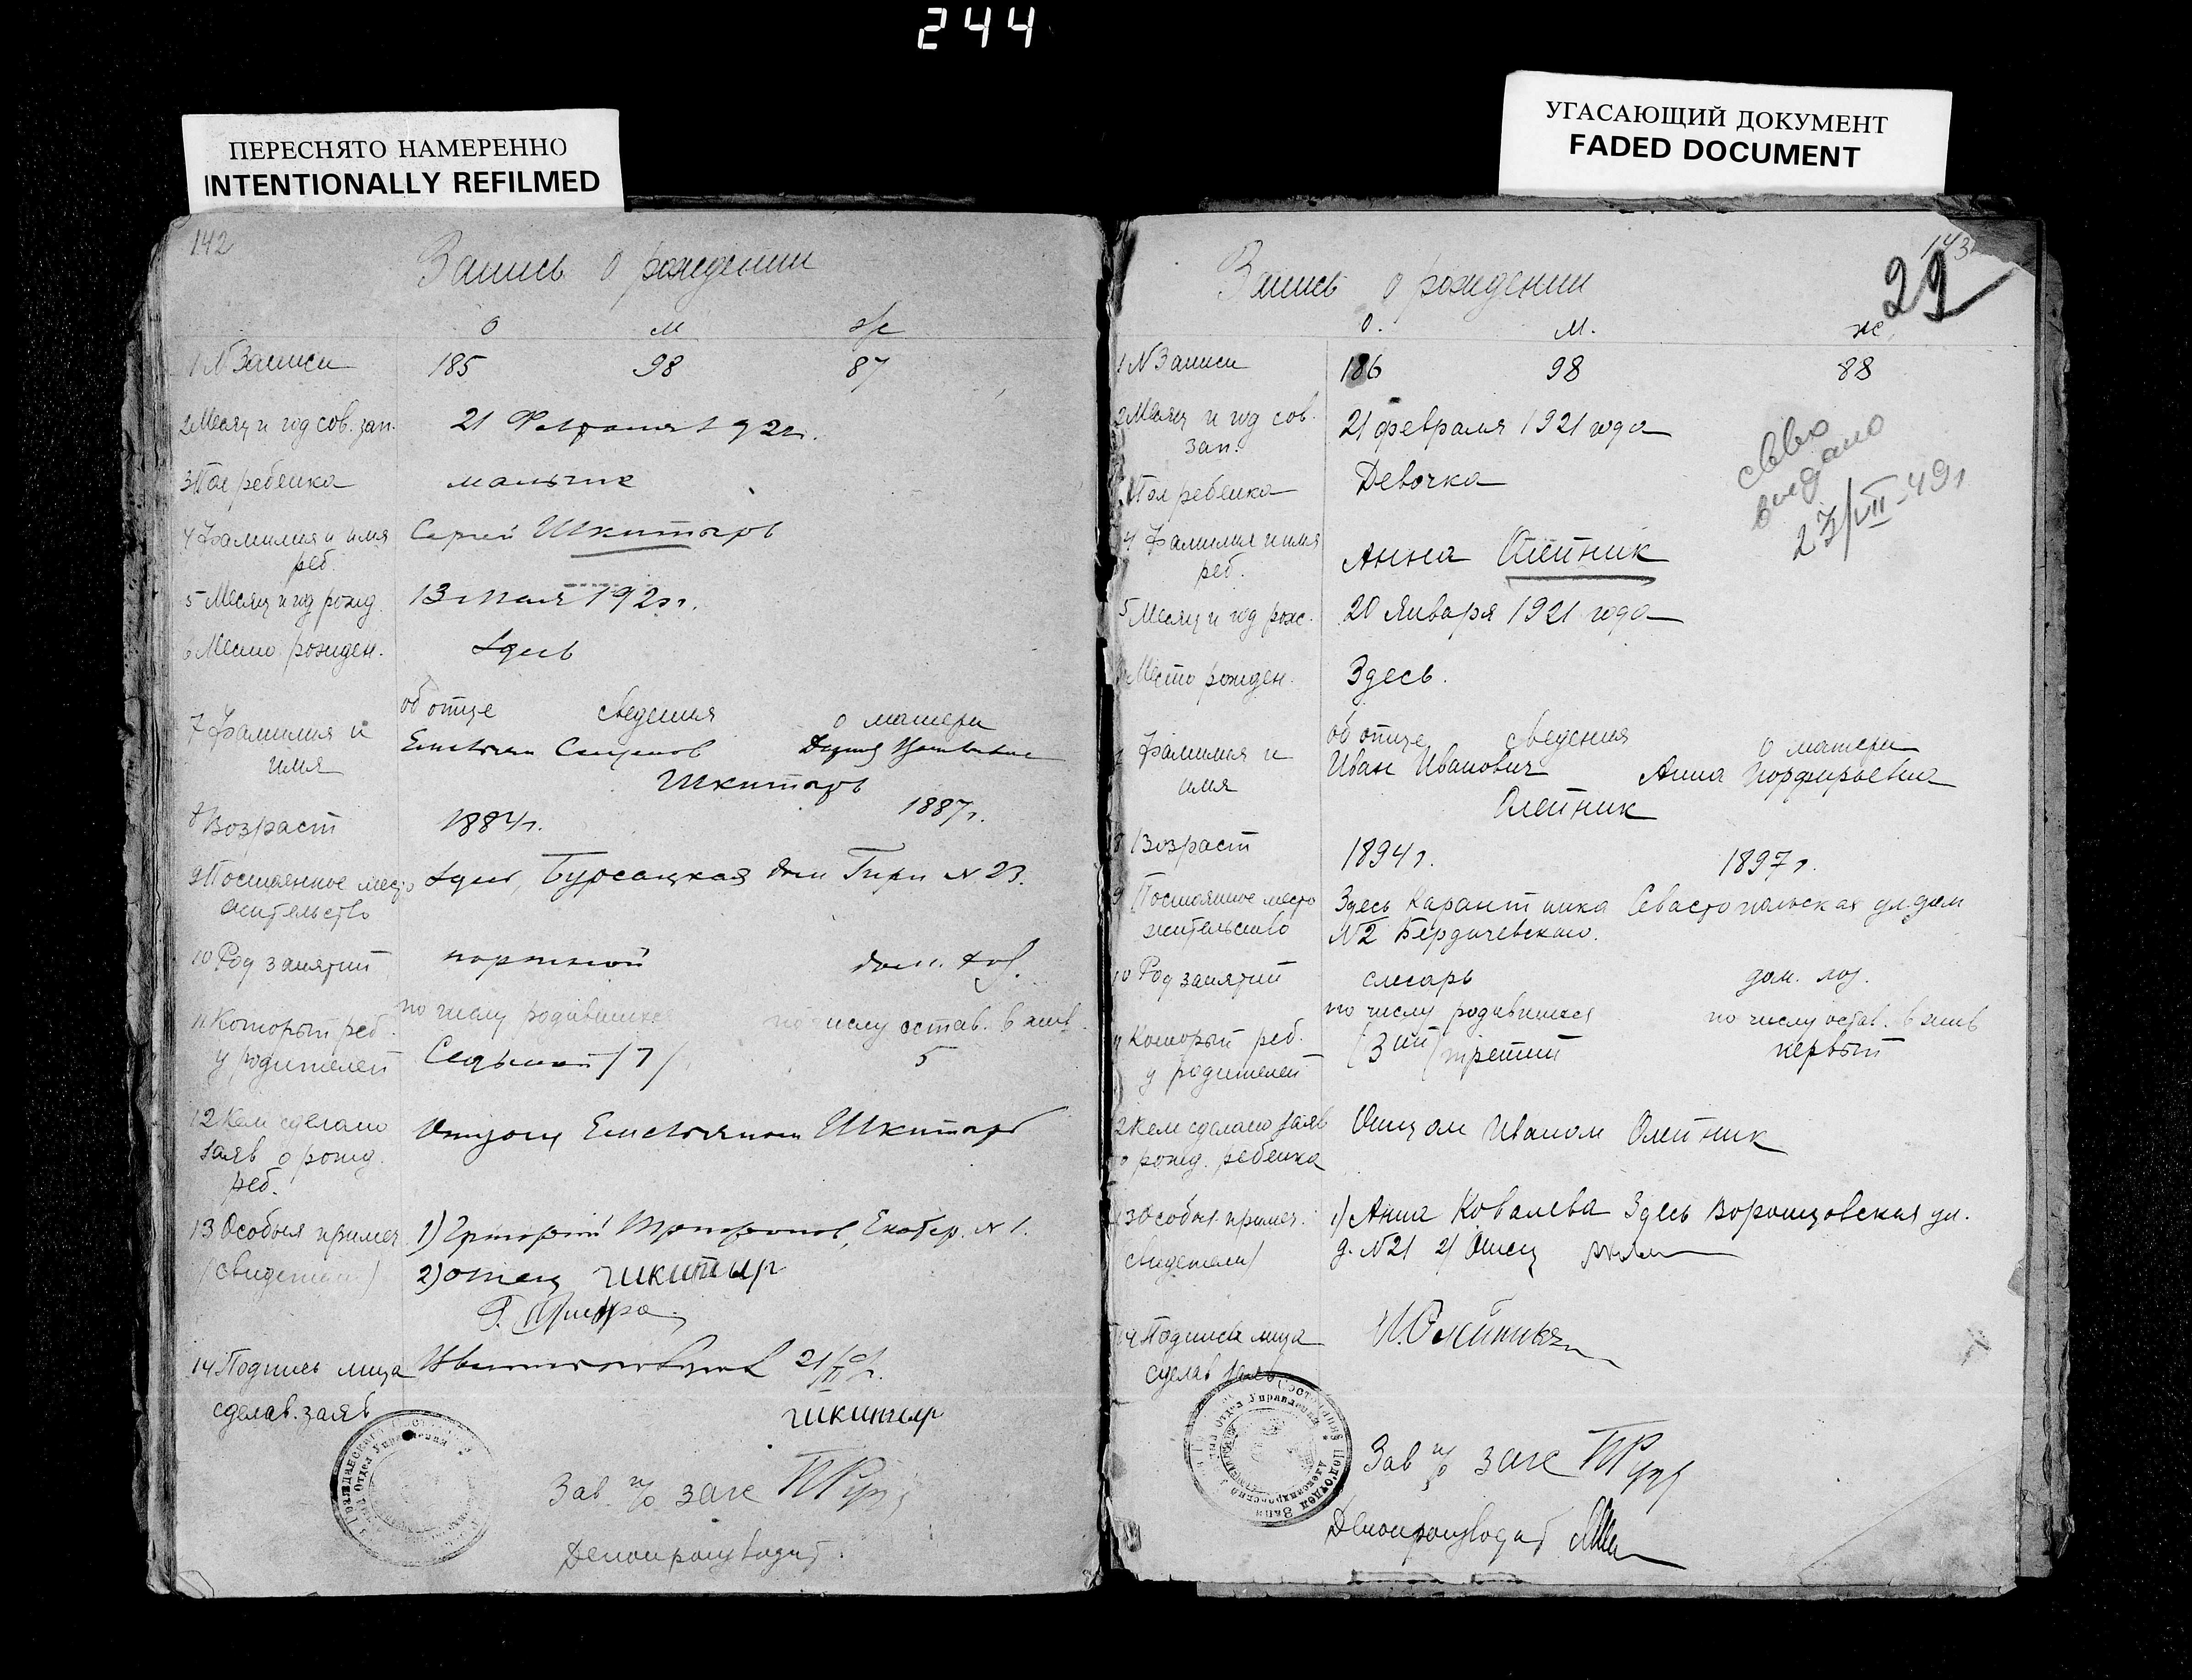 244
ПЕРЕСНЯТО НАМЕРЕННО
INTENTIONALLY REFILMED
УГАСАЮЩИЙ ДОКУМЕНТ
FADED DOCUMENT
142
Запись о рождении
О М Ж
1 N Записи 185 98 87
2 Месяц и год сов. зап. 21 Февраля 1921г.
3 Пол ребенка мальчик
4 Фамилия и имя Сергей Шкитырь
реб.
5 Месяц и год рожд. 13 мая 1920г.
6 Место рожден. Здесь
об отце сведения о матери
7 Фамилия и
имя
Шкитырь
8 Возраст 1884г. 1887г.
9 Постоянное место Здесь, Бурсацкая дом Гири N 23.
жительство
10 Род занятий портной дом. хоз.
по числу родившихся по числу остав. в жив.
11 Который реб. Седьмой /7/ 5
у родителей
12 Кем сделано Отцом Шкитырь
заяв о рожд.
реб.
13 Особыя примеч. 1) Григорий Екатер. N 1.
(свидетели) 2) отец Шкитыр
14 Подпись лица 21/II
сделав. заяв
Шкитыр
Зав. п/о загс
Делопроизводит.
143
29
Запись о рождении
О. М. Ж.
1 N Записи 186 98 88
2 Месяц и год сов. 21 февраля 1921 года
зап.
Пол ребенка Девочка
выдано
23/VII-49г
4 Фамилия и имя Анна Олейник
реб.
5 Месяц и год рож. 20 Января 1921 года
Место рожден. Здесь.
об отце сведения о матери
Фамилия и Иван Иванович Анна Порфирьевна
имя
Олейник
8 Возраст 1894г. 1897г.
9 Постоянное место Здесь Карантинка Севастопольская ул. дом
жительство N2 Бердичевского.
10 Род занятий слесарь дом. хоз.
по числу родившихся по числу остав. в жив
Который реб. (3ий) третий первый
у родителей
12 Кем сделано заяв Отцом Иваном Олейник
о рожд. ребенка
13 Особыя примеч. 1) Анна Ковалева Здесь Воронцовская ул.
свидетели) д. N21 2) Отец
14 Подпись лица И. Олейник
сделав заяв
Зав п/о загс
Делопроизводит